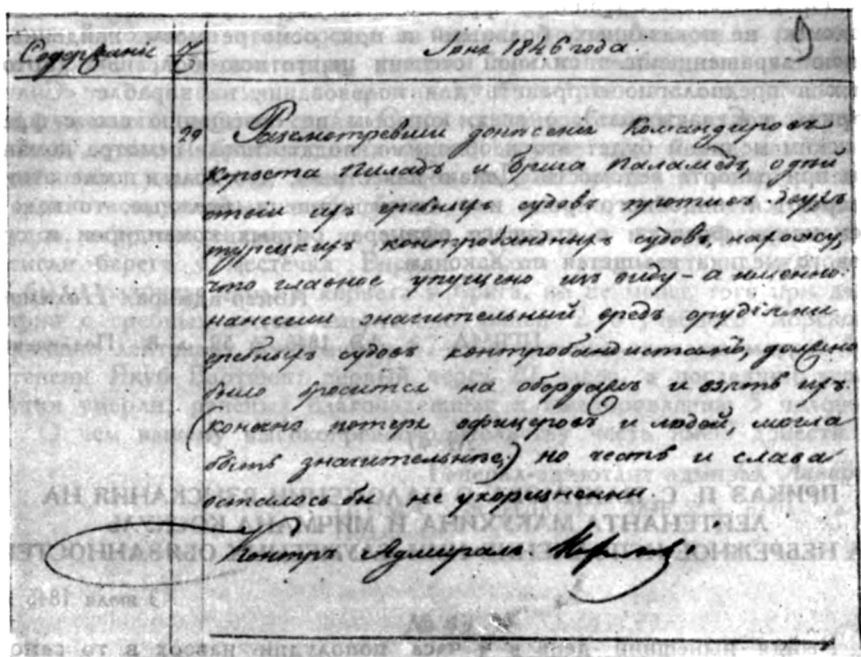 Содержаніе
Іюнь 1846 года.
29 Разсмотревши донесени Командировъ
Корвета Пиладъ и брига Паламедъ, о дей
ствіи гребныхъ судовъ противъ двухъ
турецкихъ контробандныхъ судовъ, нахожу,
что главное упущено изъ виду – а именно:
нанесши значительный вредъ орудіями
гребныхъ судовъ контробандистамъ, должно
было бросится на обордажъ и взять ихъ.
(конечно потеря офицеровъ и людей, могла
быть значительнее,) но честь и слава
осталось бы не укоризненни.
Контръ Адмиралъ